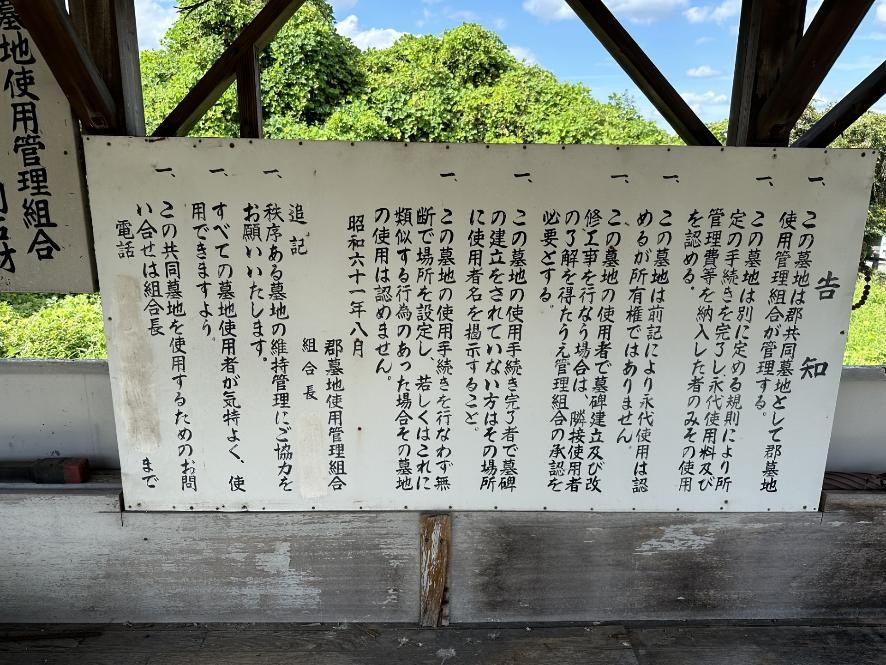 告知
一、この墓地は郡共同墓地として郡墓地
使用管理組合が管理する。
一、この墓地は別に定める規則により所
定の手続きを完了し永代使用料及び
管理費等を納入した者のみその使用
を認める。
一、この墓地は前記により永代使用は認
めるが所有権ではありません
一、この墓地の使用者で墓碑建立及び改
修工事を行なう場合は、隣接使用者
の了解を得たうえ管理組合の承認を
必要とする。
一、この墓地の使用手続き完了者で墓碑
の建立をされていない方はその場所
に使用者名を掲示すること。
一、この墓地の使用手続きを行なわず無
断で場所を設定し、若しくはこれに
類似する行為のあった場合その墓地
の使用は認めません。
昭和六十一年八月
郡墓地使用管理組合
組合長
追記
一、秩序ある墓地の維持管理にご協力を
お願いいたします。
一、すべての墓地使用者が気持よく、使
用できますよう。
一、この共同墓地を使用するためのお問
い合せは組合長
電話 まで
墓地使用管理組合